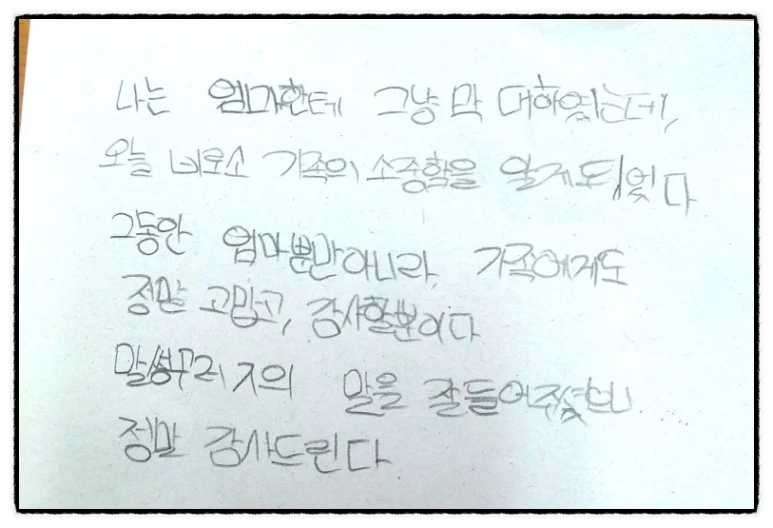 나는 엄마한테 그냥 막 대하였는데,
오늘 비로소 가족의 소중함을 알게되었다
그동안 엄마뿐만아니라, 가족에게도
정말 고맙고, 감사할뿐이다
말썽꾸러기의 말을 잘들어주셨으니.....
정말 감사드린다